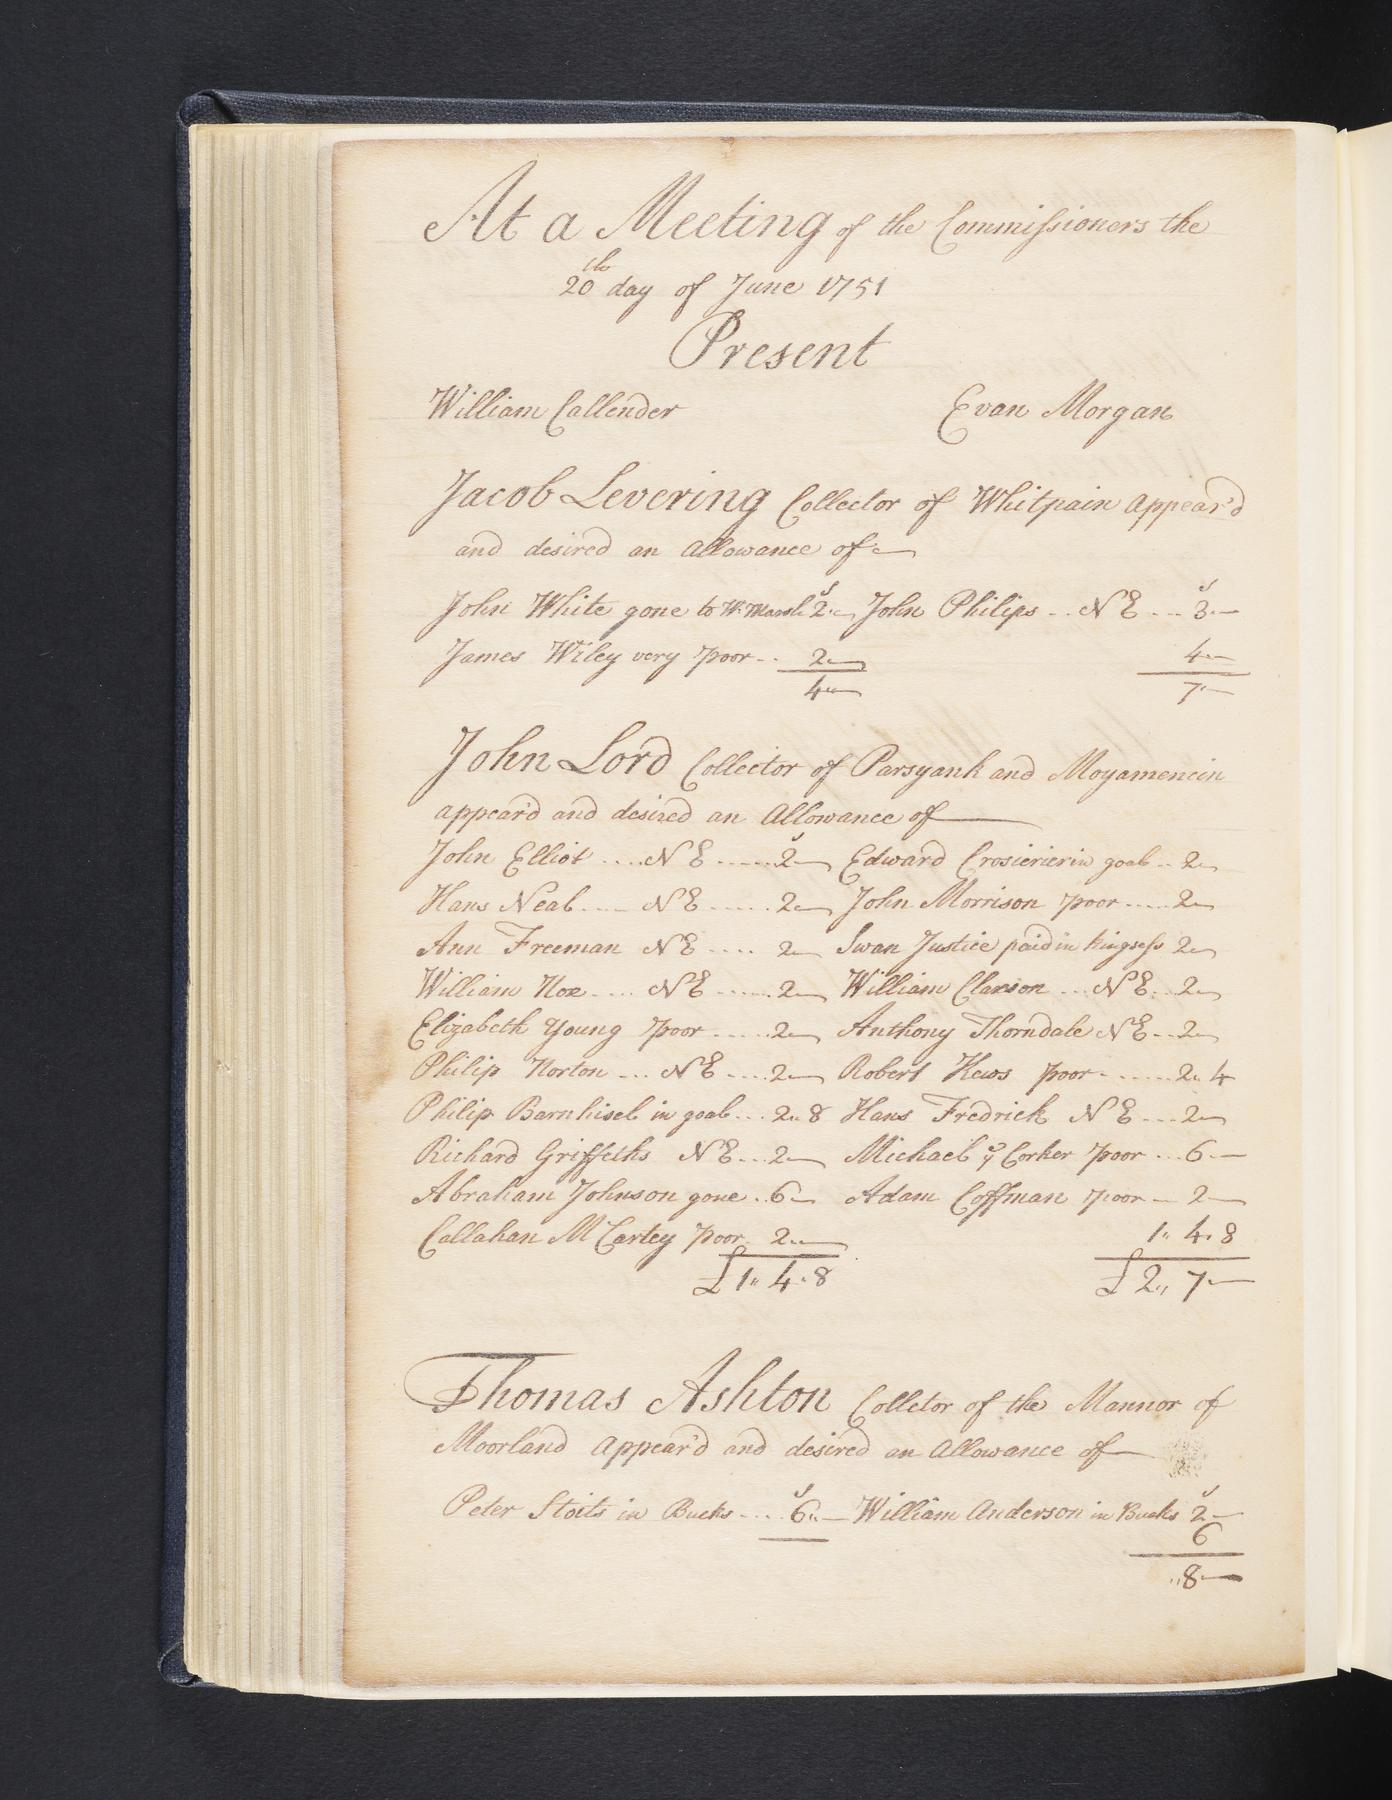 At a Meeting of the Commissioners the
20th day of June 1751
Present
William Callender Evan Morgan
Jacob Levering Collector of Whitpain appear'd
and desired an allowance of
John White gone to W. Marsh 2 John Philips N E 3
James Wiley very poor 2 4
4 7
John Lord Collector of Parsyank and Moyamencin
appear'd and desired an Allowance of
John Elliot N E 2 Edward Crosierier in goal 2
Hans Neal N E 2 John Morrison poor 2
Ann Freeman N E 2 Swan Justice paid in kingsess 2
William Nox N E 2 William Clarson N E 2
Elizabeth Young poor 2 Anthony Thorndale N E 2
Philip Norton N E 2 Robert Hews poor 2 4
Philip Barnhisel in goal 2 8 Hans Fredrick N E 2
Richard Griffeths N E 2 Michael ye Corker poor 6
Abraham Johnson gone 6 Adam Coffman poor 2
Callahan McCartey poor 2 1 4 8
£1 4 8 £2 7
Thomas Ashton Colletor of the Mannor of
Moorland appear'd and desired an Allowance of
Peter Stoits in Bucks 6 William Anderson in Bucks 2
6
8